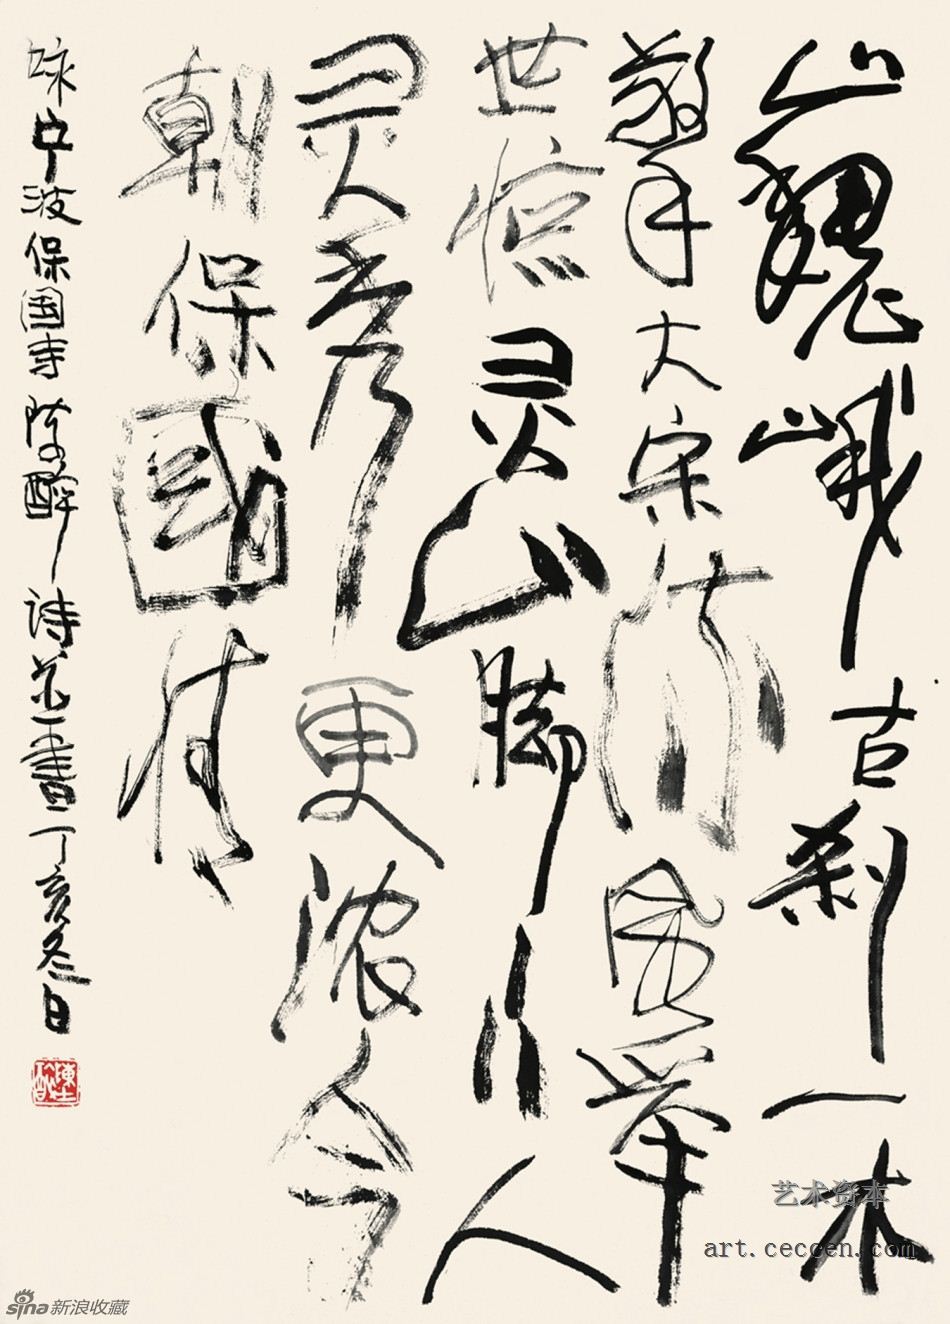 巍峨古刹一木
擎大宋流风举
世惊灵山脚下人
灵秀更浓今
朝保國情
咏宁波保国寺陈醉诗并書丁亥冬日
艺术资本
art.ceccen.com
sina新浪收藏